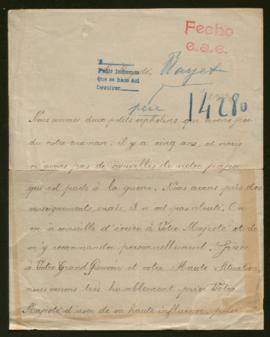 Fecho
e.e.e.
Rayet
Pedir informes
que se hace del
Devolver
14280
Nous sommes deux petits orphelins qui avons per
du notre maman, il y a cinq ans, et nous
n'avons pas de nouvelles de notre papa
qui est parti à la guerre. Nous avons pris des
renseignements mais il n'ont pas abouti. On
m'a conseillé d'écrire à Votre Majesté et de
m'y recommander personnellement. Grâce
à Votre Grand Pouvoir et votre Haute Situation,
nous venons très humblement prier Votre
Majesté d'user de sa haute influence, pour